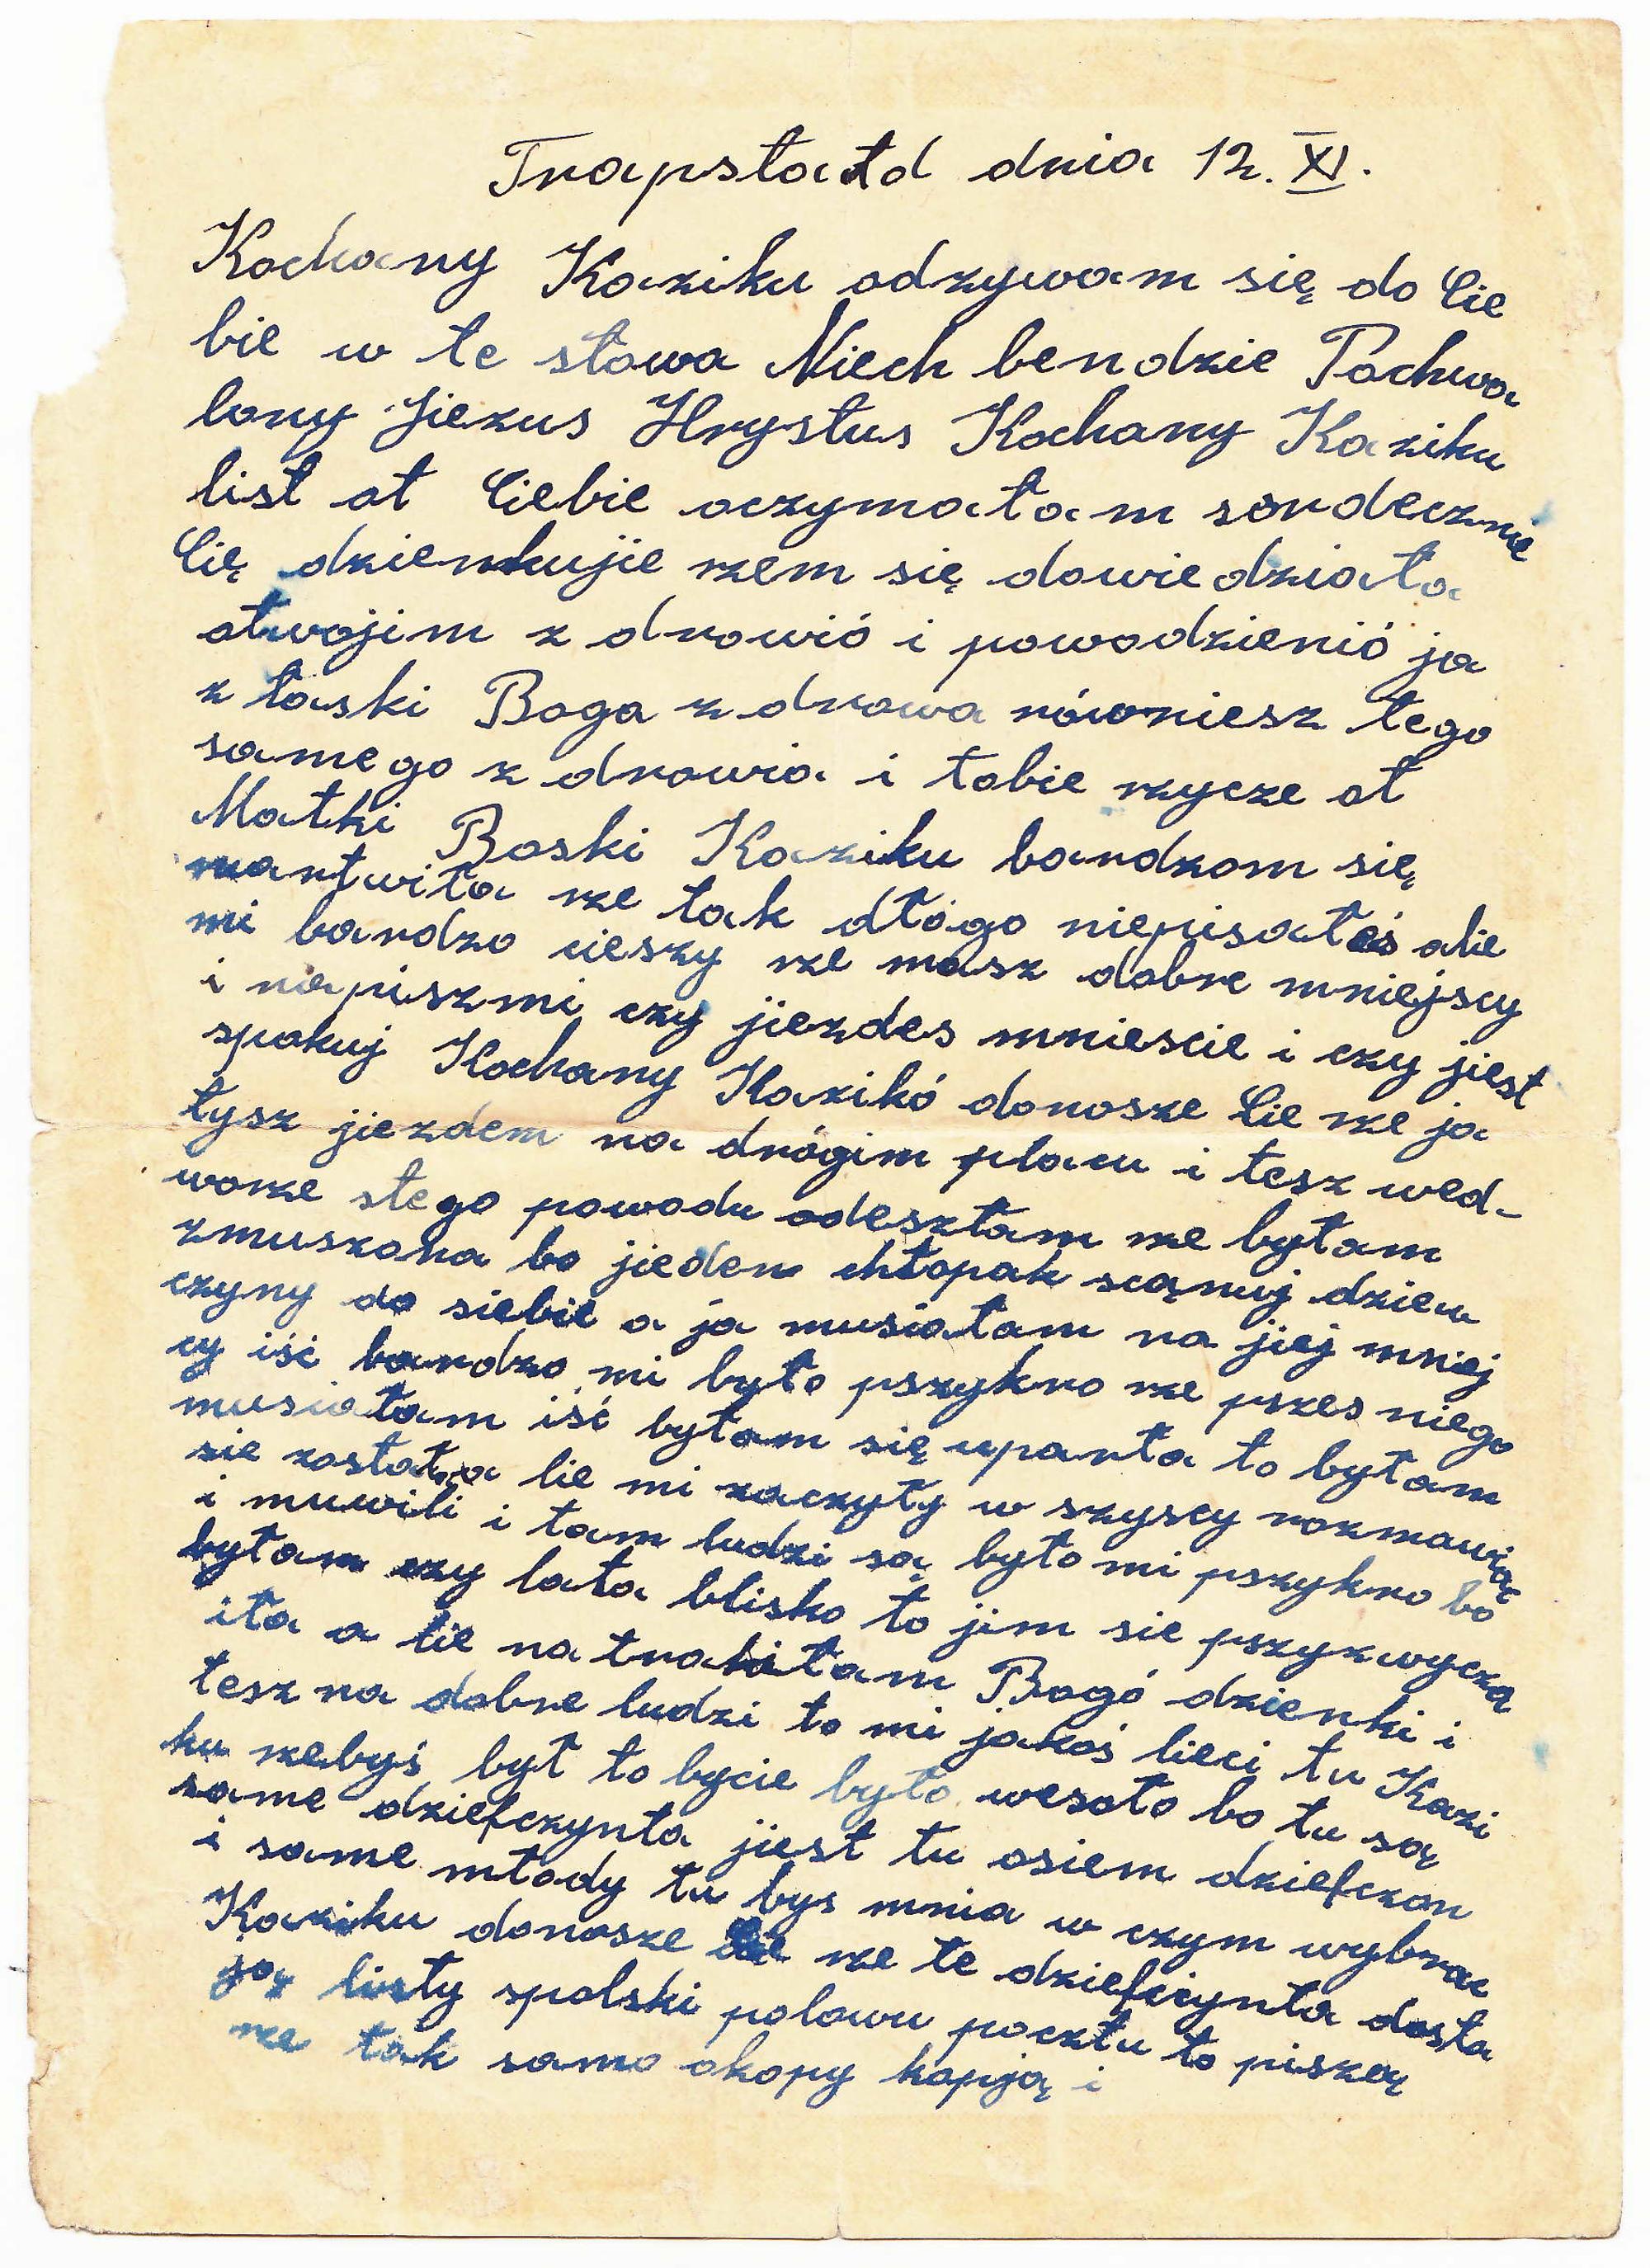 Trapstatd dnia 12. XI.
Kochany Kaziku odzywam się do Cie
bie w te słowa Niech bendzie Pochwa
lony Jiezus Hrystus Kochany Kaziku
list ot Ciebie oczymałam serdecznie
Cię dzienkujie rzem się dowiedziała
otwojim z drowió i powodzienió ja
z łaski Boga z drowa równiesz tego
samego z drowia i tobie rzycze ot
Matki Boski Kaziku bardzom się
martwiła rze tak dłógo niepisałeś alie
mi bardzo cieszy rze masz dobre mniejscy
i napiszmi czy jiezdes mniescie i czy jiest
spokuj Kochany Kazikó donosze Cie rze ja
tysz jiezdem na drógim placu i tesz wed-
worze stego powodu odeszłam rze byłam
zmuszona bo jieden chłopak scąnuj dziew
czyny do siebie a ja musiałam na jiej mniej
cy iść bardzo mi było pszykro rze pszes niego
musiałam iść byłam się uparła to byłam
sie została lie mi zaczyły w szyscy rozmawiać
i muwili i tam ludzi są było mi pszykro bo
byłam czy lata blisko to jim sie pszyzwycza
iła a lie na trafiłam Bogó dzienki i
tesz na dobre ludzi to mi jakoś lieci tu Kazi
ku rzebyś był to bycie było wesoło bo tu są
same dziefczynta jiest tu osiem dziefczon
i same młody tu bys mnia w czym wybrac
Kaziku donosze Cie rze te dziefczynta dosta
ją listy spolski polowu pocztu to piszą
rze tak samo okopy kopją i